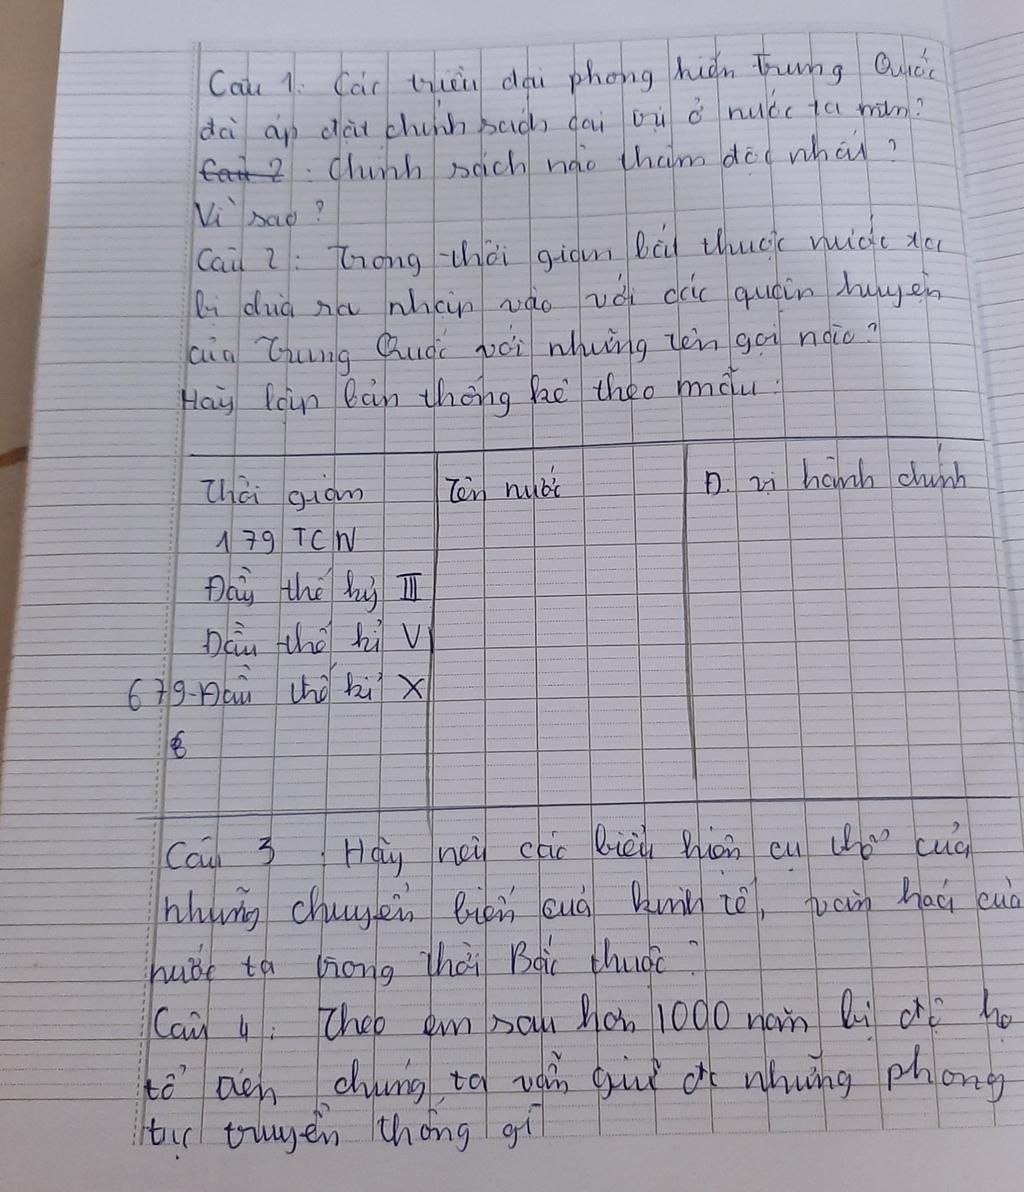 Câu 1. Các triều đại phong kiến Trung Quốc
đã áp đặt chính sách cai trị ở nước ta ntn?
Câu 2 : Chính sách nào thâm độc nhất ?
Vì sao ?
Câu 2 : Trong thời gian bắt thuộc nước ta
bị chia ra nhập vào với các quận huyện
của Trung Quốc với những tên gọi nào?
Hãy lập bản thống kê theo mẫu :
Thời gian Tên nước Đ. vị hành chính
179 TCN
Đầu thế kỷ III
Đầu thế kỉ V
679-Đầu thế kỉ X
Câu 3 . Hãy nêu các biểu hiện cụ thể của
những chuyển biến của kinh tế, văn hoá của
nước ta trong thời Bắc thuộc ?
Câu 4 : Theo em sau hơn 1000 năm bị đô hộ
tổ tiên chúng ta vẫn giữ đc những phong
tục truyền thống gì